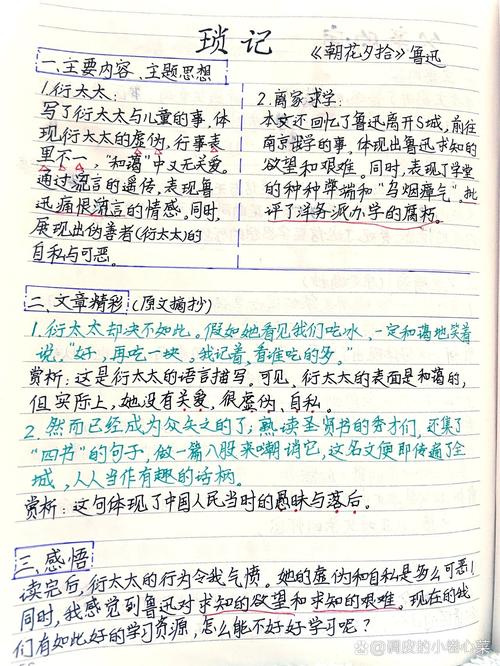 琐记
《朝花夕拾》鲁迅
一、主要内容、主题思想
1.衍太太:
写了衍太太与儿童的事,体
现衍太太的虚伪,行事表
里不一,“和蔼”中又无关爱。
通过流言的遥传,表现鲁
迅痛恨流言的情感。同时,
展现出伪善者(衍太太)的
自私与可恶。
2.离家求学:
本文还回忆了鲁迅离开S城,前往
南京求学的事,体现出鲁迅求知的
欲望和艰难。同时,表现了学堂
的种种弊端和“乌烟瘴气”。批
评了洋务派办学的腐朽。
二、文章精彩(原文摘抄)
1.衍太太却决不如此。假如她看见我们吃冰,一定和蔼地笑着
说,“好,再吃一块。我记着,看谁吃的多。”
赏析:这是衍太太的语言描写。可见,衍太太的表面是和蔼的,
但实际上,她没有关爱,很虚伪、自私。
2.然而已经成为众矢之的了,熟读圣贤书的秀才们,还集了
“四书”的句子,做一篇八股来嘲诮它,这名文便即传遍了全
城,人人当作有趣的话柄。
赏析:这句体现了中国人民当时的愚昧与落后。
三、感悟
读完后,衍太太的行为令我气愤。她的虚伪和自私是多么可恶!
同时,我感觉到鲁迅对求知的欲望和求知的艰难。现在的我
们有如此好的学习资源,怎么能不好好学习呢?
@调皮的小卷心菜